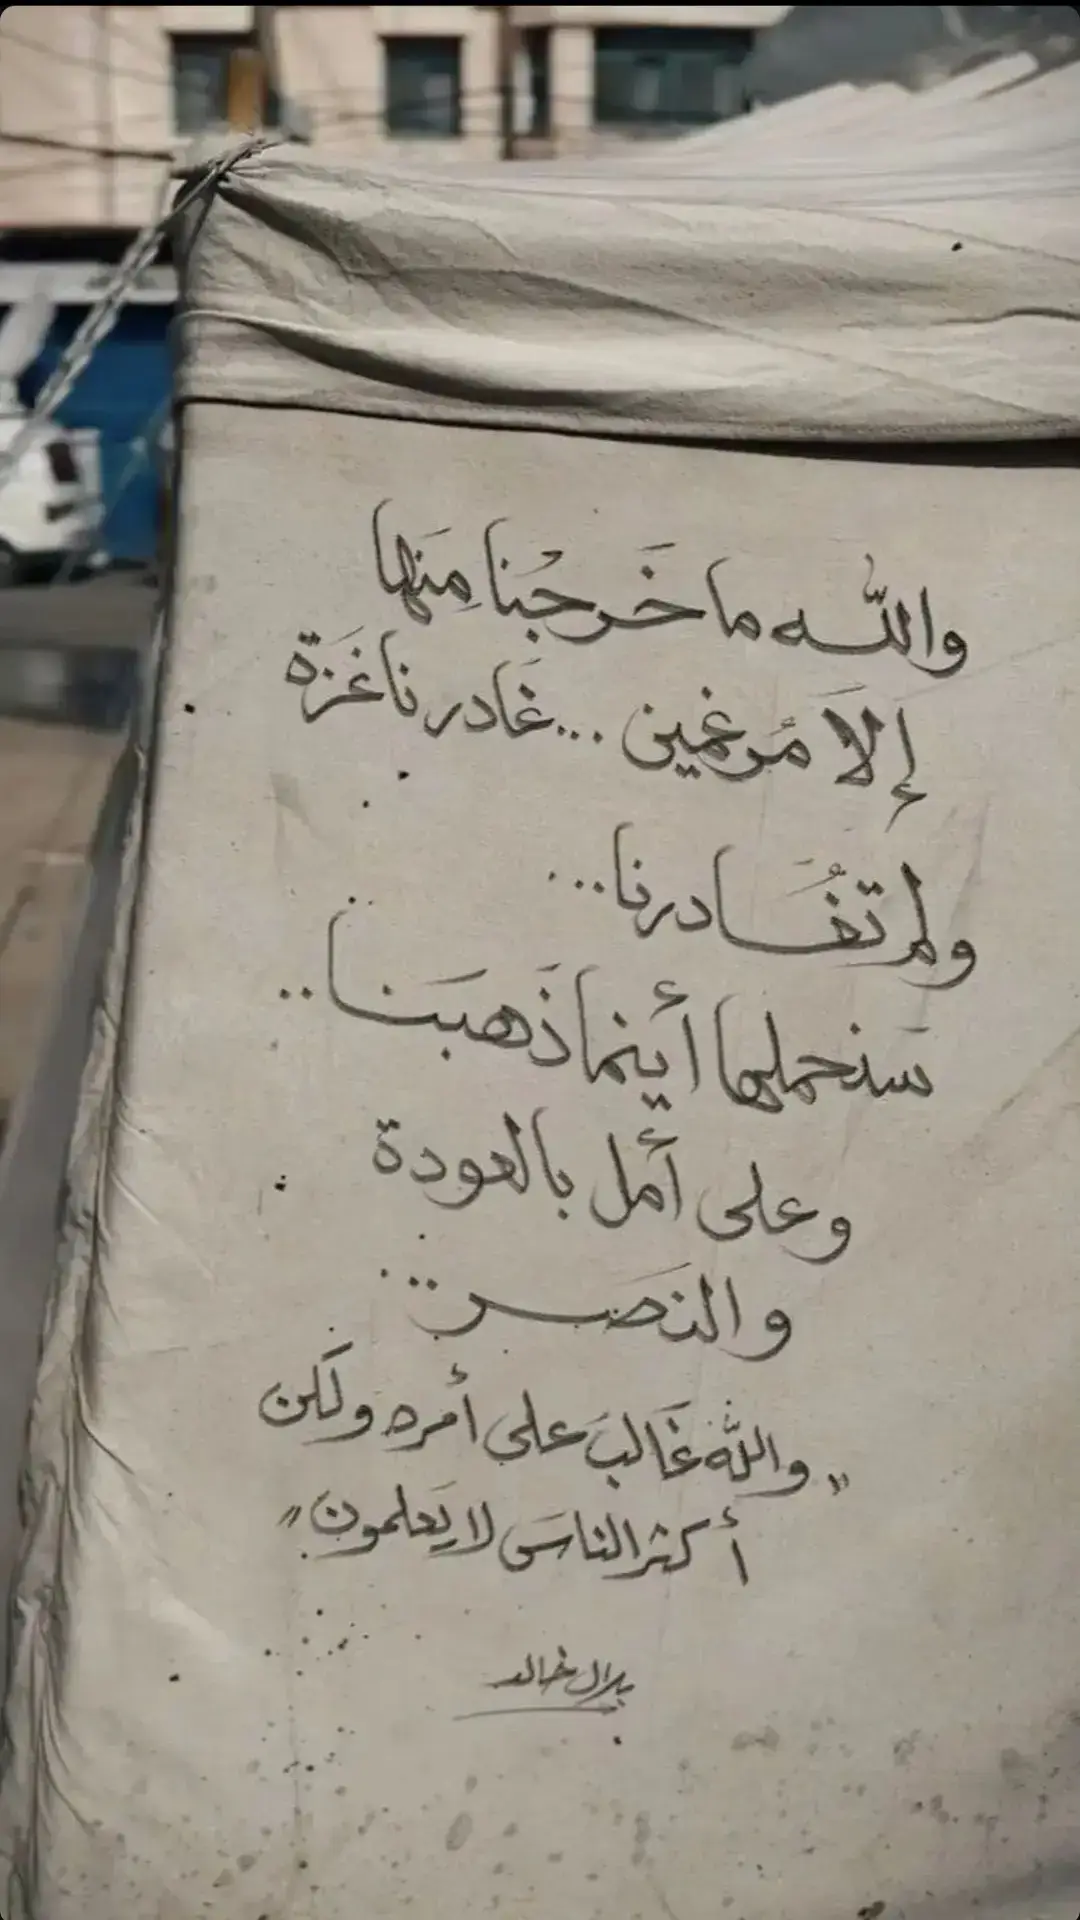 والله ما خَرجْنا مِنَها
إلاَ مُرغمين ... غَادرنا غَزَة
ولم تغُادرنا...
سَنحملها أينما ذَهبَنا..
وعلى أمل بالعودة
والنَصر...
"واللَّه غَالبَ على أمره ولَكن
أكثر الناسَ لا يَعلمون"
بلال خالد